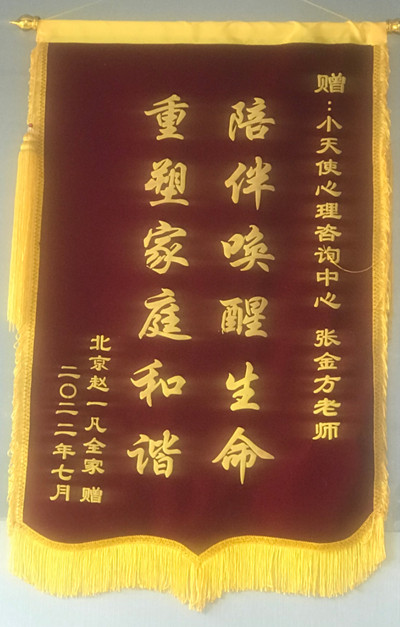 赠：小天使心理咨询中心 张金方老师
陪伴唤醒生命
重塑家庭和谐
北京赵一凡全家 赠
二〇二二年七月